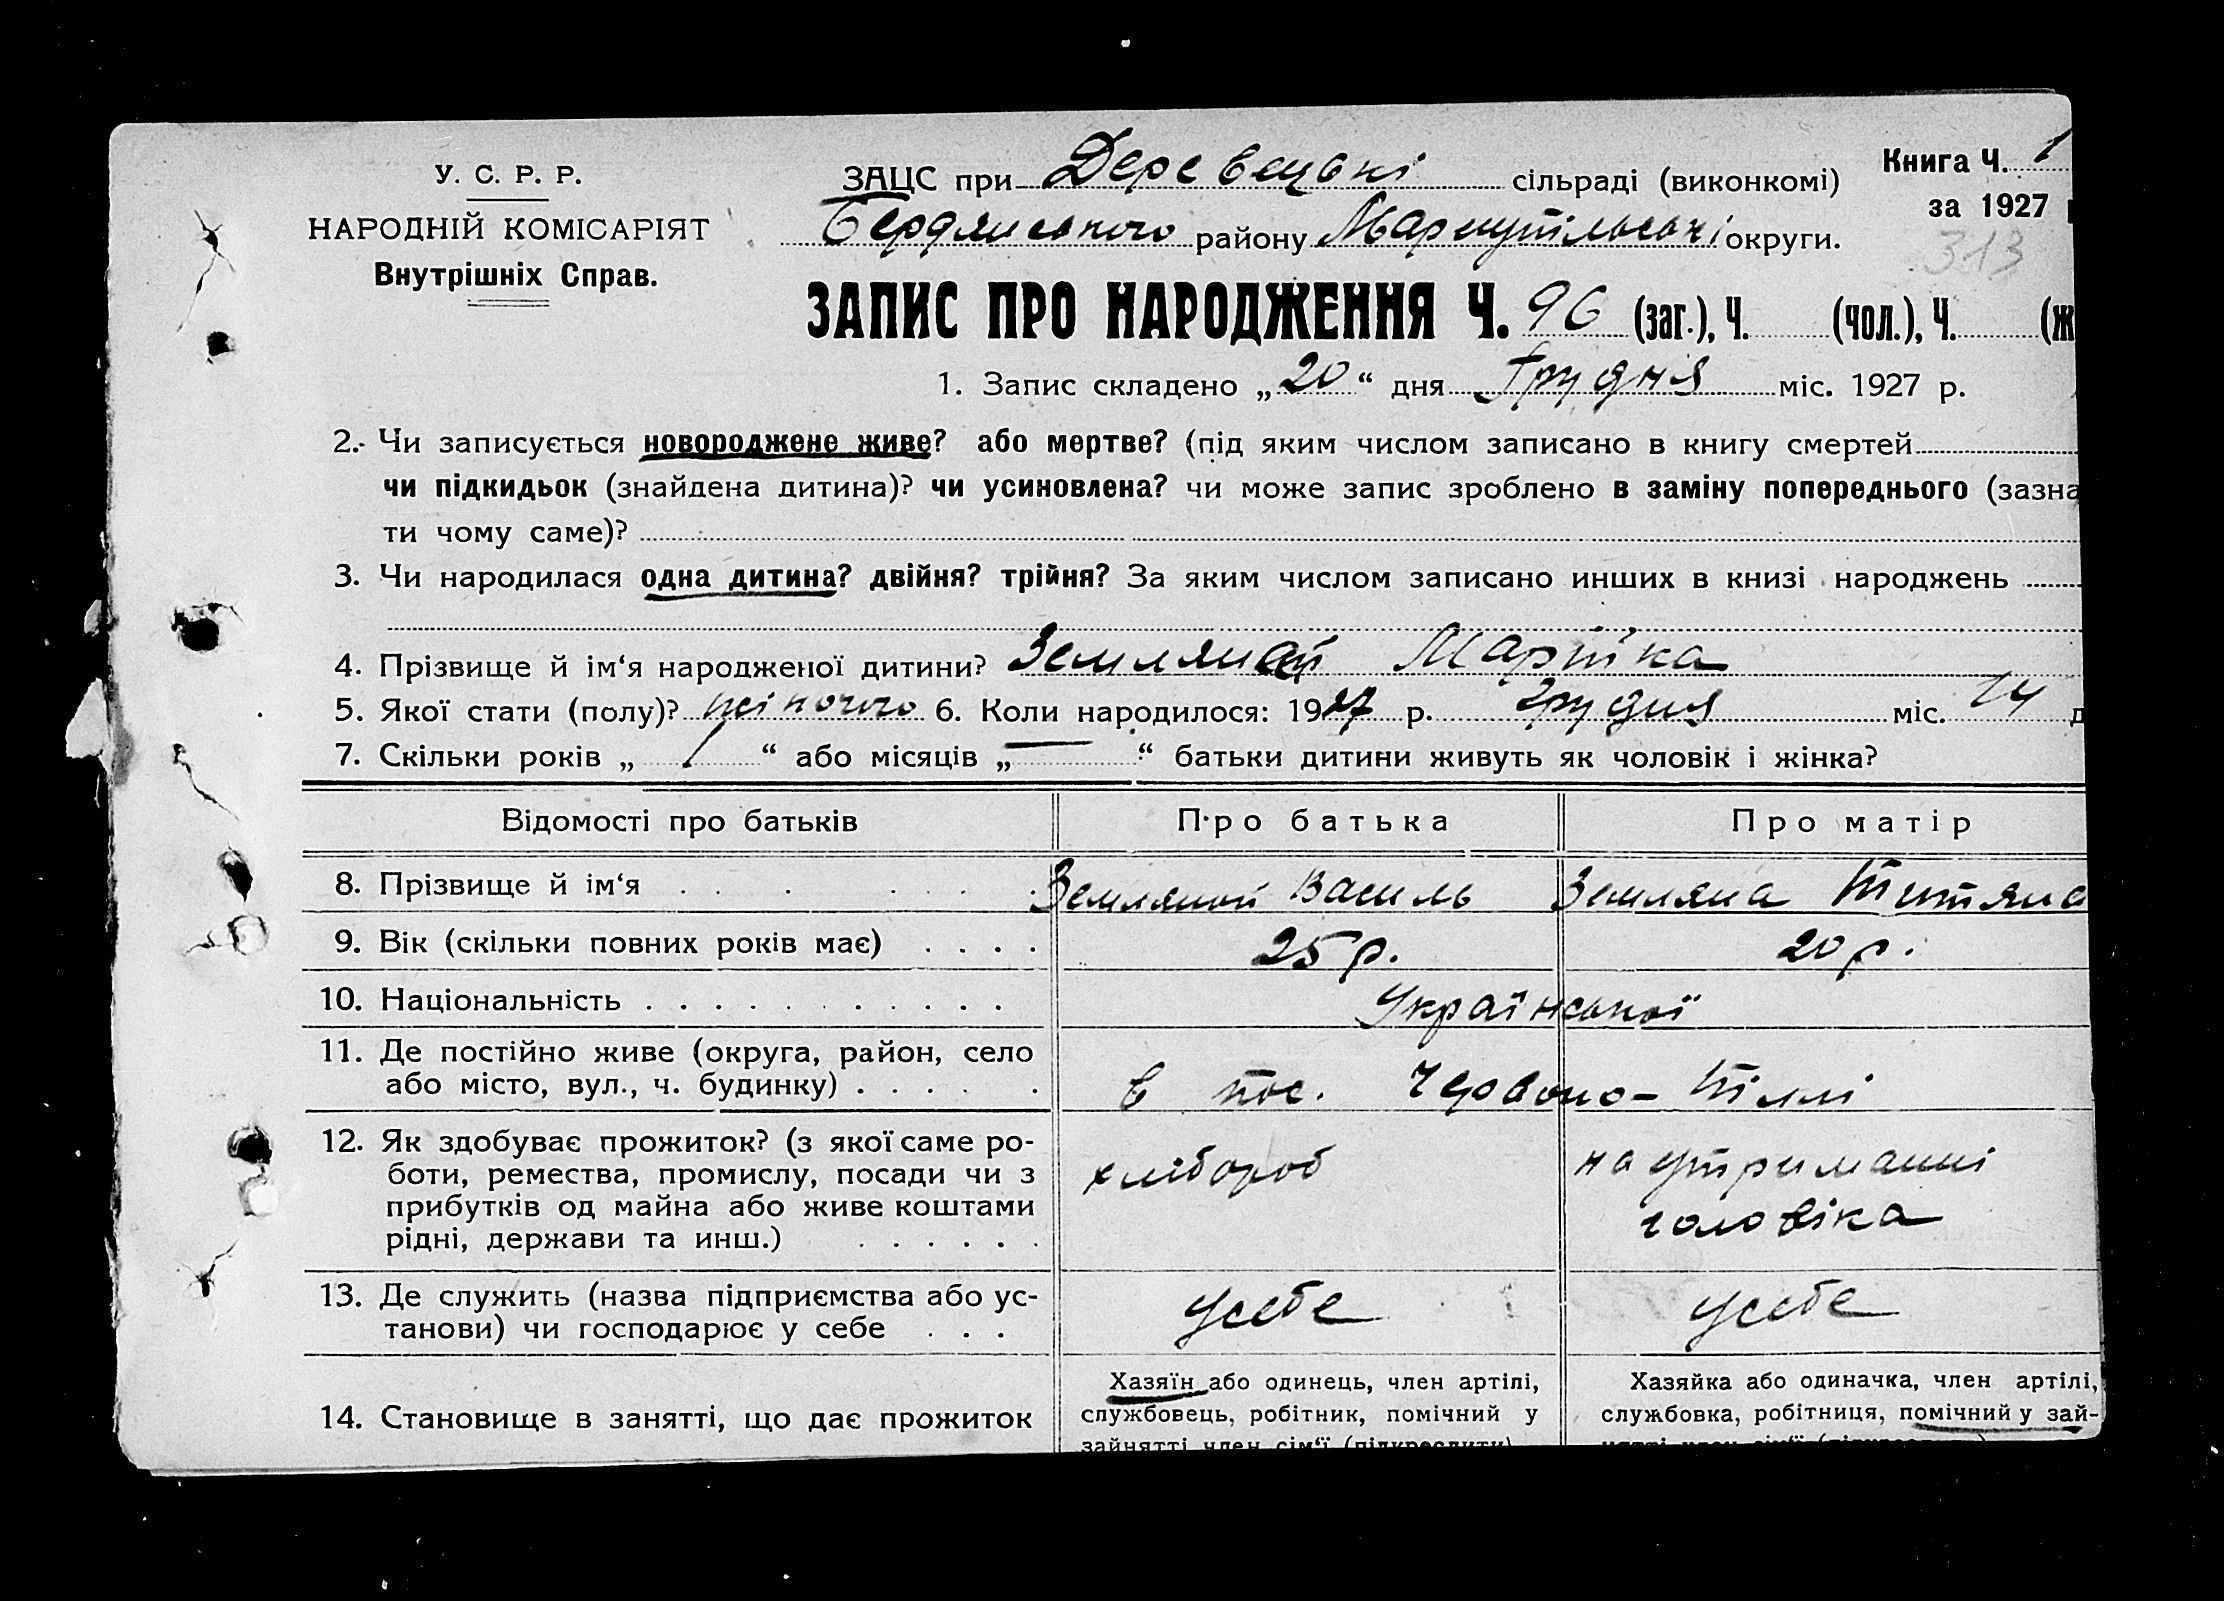 У. С. Р. Р.
НАРОДНІЙ КОМІСАРІЯТ
Внутрішніх Справ.
ЗАЦС при Деревецькі сільраді (виконкомі)
Книга Ч. 1
Бердянського району Маріупільські округи.
за 1927
313
ЗАПИС ПРО НАРОДЖЕННЯ Ч. 96 (заг.), Ч. (чол.), Ч. (ж
1. Запис складено „20“ дня Грудня міс. 1927 р.
2. Чи записується новороджене живе? або мертве? (під яким числом записано в книгу смертей
чи підкидьок (знайдена дитина)? чи усиновлена? чи може запис зроблено в заміну попереднього (зазна
ти чому саме)?
3. Чи народилася одна дитина? двійня? трійня? За яким числом записано инших в книзі народжень
4. Прізвище й ім‘я народженої дитини? Марійка
5. Якої стати (полу)? жіночого 6. Коли народилося: 1927 р. грудня міс. 14 д
7. Скільки років „ 1 “ або місяців „ — “ батьки дитини живуть як чоловік і жінка?
Відомості про батьків Про батька Про матір
8. Прізвище й ім‘я Земляной Василь Земляна Титяна
9. Вік (скільки повних років має) 25 р. 20 р.
10. Національність Української
11. Де постійно живе (округа, район, село
або місто, вул., ч. будинку) в пос. Червоно-Піллі
12. Як здобуває прожиток? (з якої саме ро-
боти, ремества, промислу, посади чи з
прибутків од майна або живе коштами
рідні, держави та инш.)
хлібороб
на утриманні
чоловіка
13. Де служить (назва підприємства або ус-
танови) чи господарює у себе
усебе
усебе
14. Становище в занятті, що дає прожиток
Хазяїн або одинець, член артілі,
службовець, робітник, помічний у
зайнятті член сім‘ї (підкреслити)
Хазяйка або одиначка, член артілі,
службовка, робітниця, помічний у зай-
нятті член сім‘ї